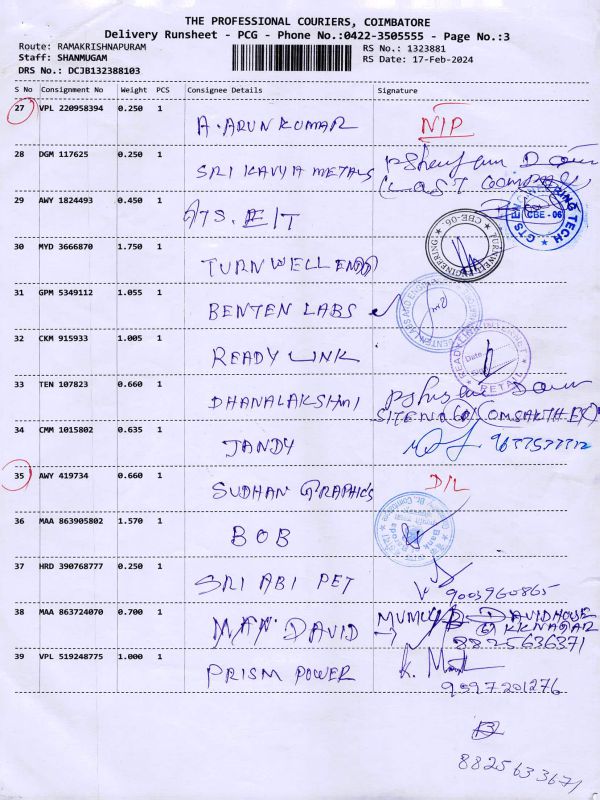 THE PROFESSIONAL COURIERS, COIMBATORE
Delivery Runsheet - PCG - Phone No.:0422-3505555 - Page No.:3
Route: RAMAKRISHNAPURAM
RS No.: 1323881
Staff: SHANMUGAM
RS Date: 17-Feb-2024
DRS No.: DCJB132388103
S No Consignment No Weight PCS Consignee Details Signature
27 VPL 220958394 0.250 1 A. ARUN KUMAR N/P
28 DGM 117625 0.250 1 SRI KAVYA METALS
29 AWY 1824493 0.450 1
CBE - 06
30 MYD 3666870 1.750 1 TURNWELL
TURNWELL ENGINEERING CBE-06
31 GPM 5349112 1.055 1 BENTEN LABS
32 CKM 915933 1.005 1 READY LINK
Date
RETAIL
33 TEN 107823 0.660 1 DHANALAKSHMI
34 CMM 1015802 0.635 1 JANDY
35 AWY 419734 0.660 1 SUDHAN GRAPHICS D/L
36 MAA 863905802 1.570 1 BOB
37 HRD 390768777 0.250 1 SRI ABI PET
9003960865
38 MAA 863724070 0.700 1 DAVID DAVID HOUSE
KK NAGAR
8825636371
39 VPL 519248775 1.000 1 PRISM POWER K.
9597201276
8825633671